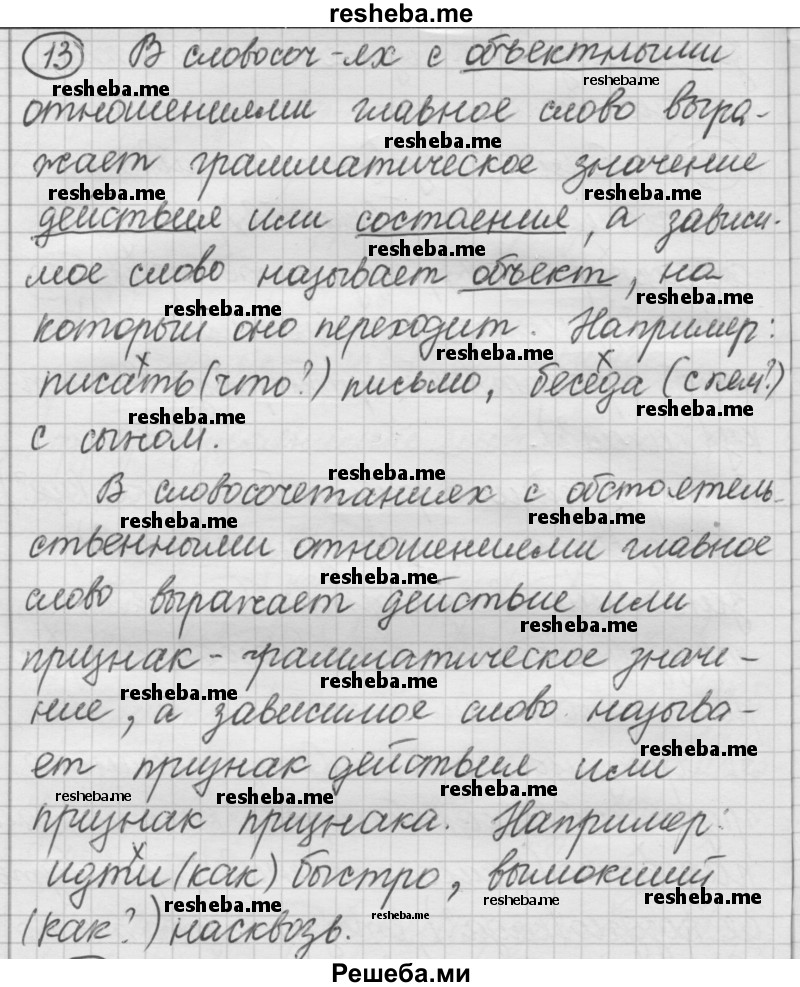 resheba.me
13 В словосоч-ях с объектными
resheba.me resheba.me
отношениями главное слово выра-
resheba.me
жает грамматическое значение
resheba.me resheba.me
действия или состоения, а зависи-
resheba.me
мое слово называет объект, на
resheba.me resheba.me
который оно переходит. Например:
resheba.me
писать (что?) письмо, беседа (с кем?)
resheba.me resheba.me
с сыном.
resheba.me
В словосочетаниях с обстоятель-
resheba.me resheba.me
ственными отношениями главное
resheba.me
слово выражает действие или
resheba.me
признак - грамматическое значе-
resheba.me resheba.me
ние, а зависимое слово называ-
resheba.me
ет признак действия или
resheba.me resheba.me resheba.me
признак признака. Например:
идти (как) быстро, вымокший
resheba.me resheba.me resheba.me resheba.me
(как?) насквозь.
Решеба.ми